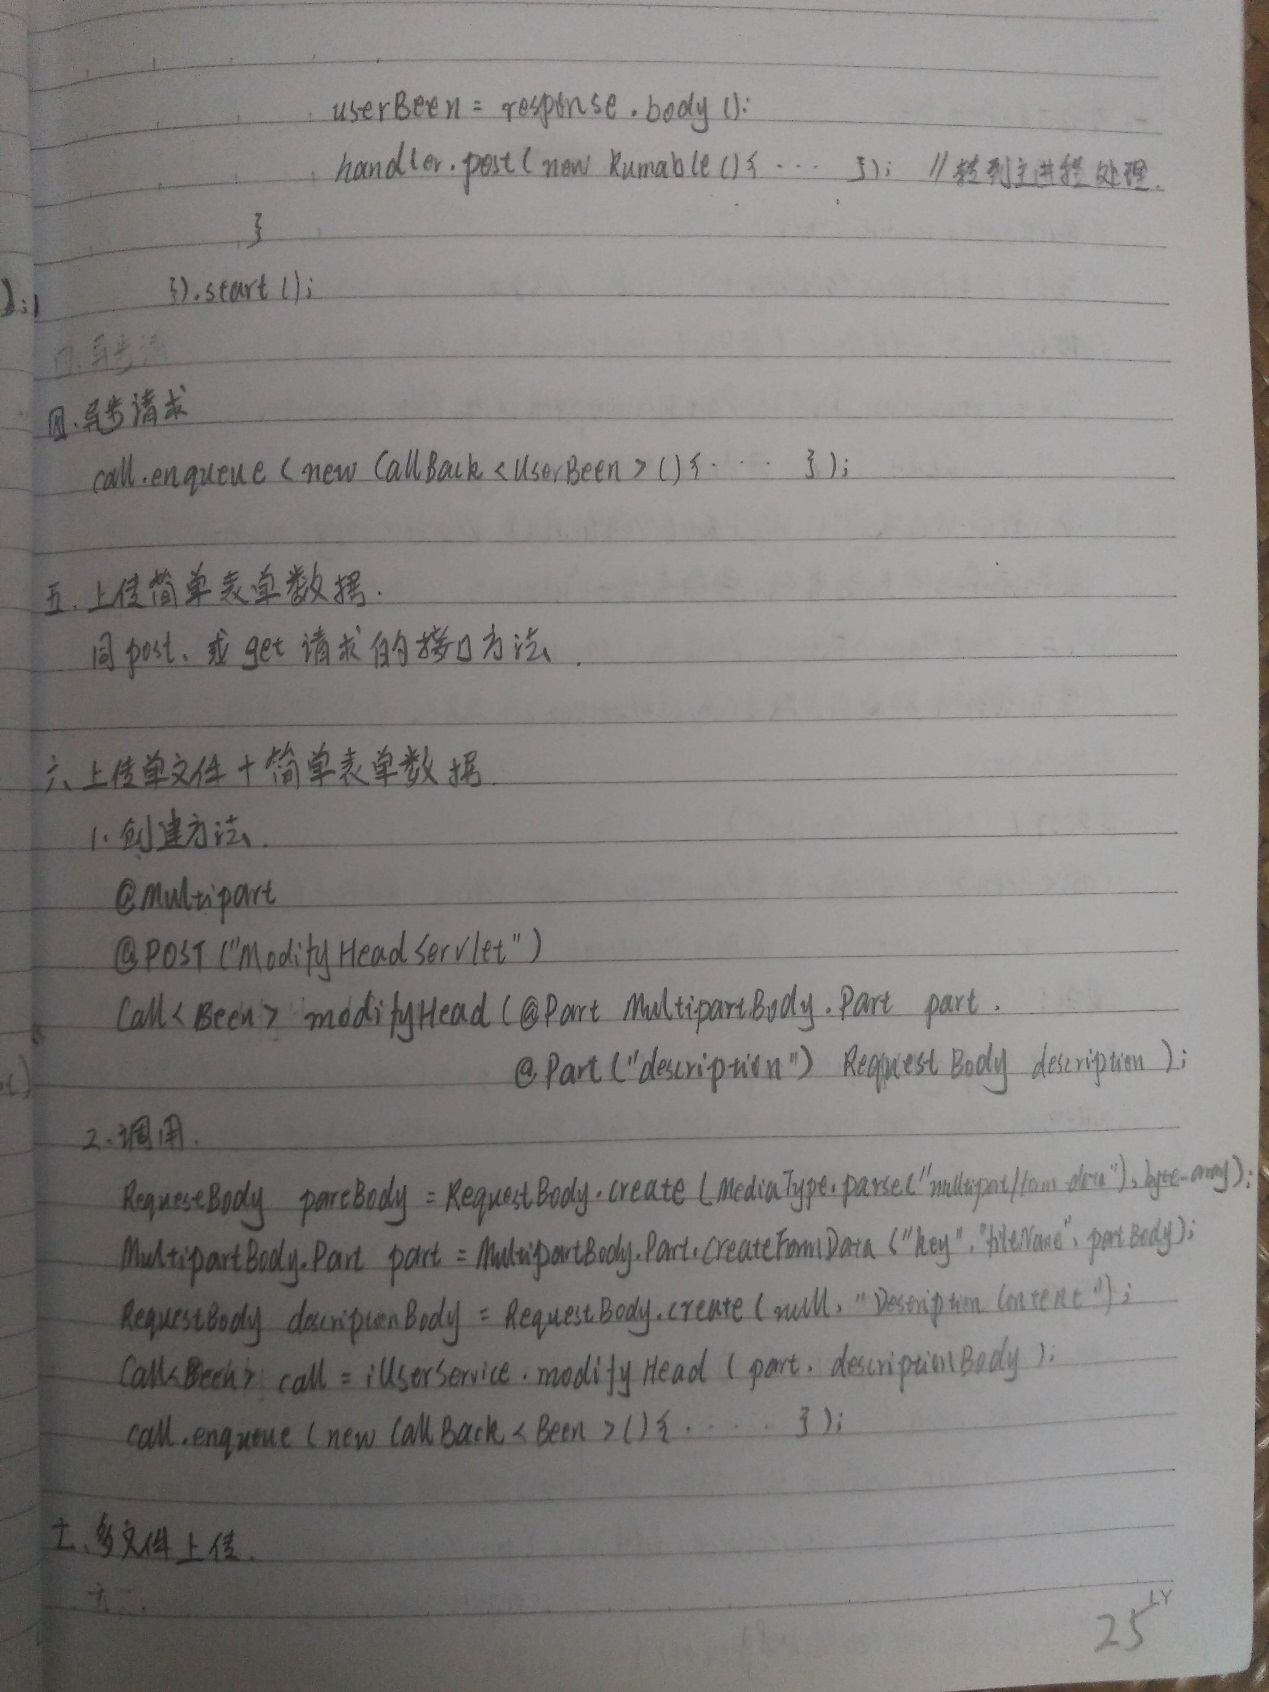 userBeen = response.body ();
handler.post( new Runnable (){ ···· }); //转到主进程处理.
}
}).start ();
);
四.异步请
四.异步请求
call.enqueue ( new CallBack <UserBeen > (){ ···· });
五.上传简单表单数据.
同post、或 get 请求的接口方法.
六.上传单文件 + 简单表单数据.
1.创建方法.
@Multipart
@POST ("ModifyHeadServlet")
Call< Been > modifyHead ( @Part MultipartBody.Part part,
@Part ("description") RequestBody description );
2.调用.
RequestBody partBody = RequestBody.create (MediaType.parse("multipart/form-data"), byte-array);
MultipartBody.Part part = MultipartBody.Part.createFormData ("key", "fileName", partBody);
RequestBody descriptionBody = RequestBody.create ( null, "Description Content");
Call<Been> call = iUserService.modifyHead ( part, descriptionBody );
call.enqueue ( new CallBack < Been > (){ ····· });
七.多文件上传.
25
LY